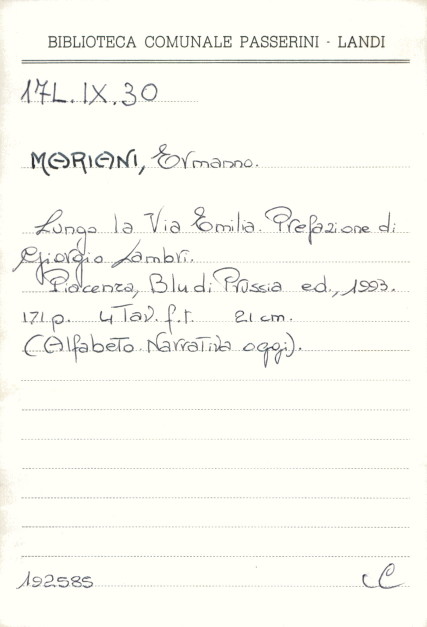 BIBLIOTECA COMUNALE PASSERINI - LANDI
17L.IX.30
MARIANI, Ermanno.
Lungo la Via Emilia. Prefazione di
Giorgio Lambri.
Piacenza, Blu di Prussia ed., 1993.
171 p. 4 Tav. f.t. 21 cm.
(Alfabeto. Narrativa oggi).
192585 C